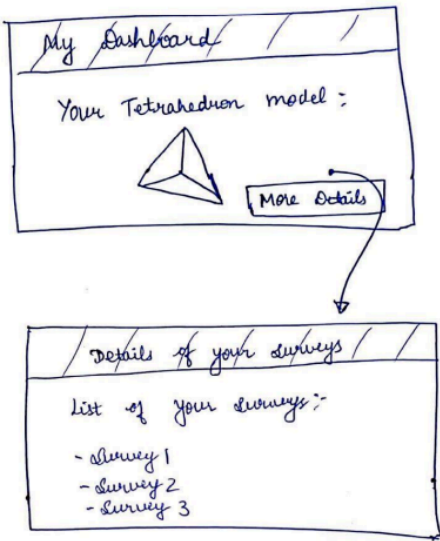 My Dashboard
Your Tetrahedron model :
More Details
Details of your surveys
List of your surveys:-
- Survey 1
- Survey 2
- Survey 3